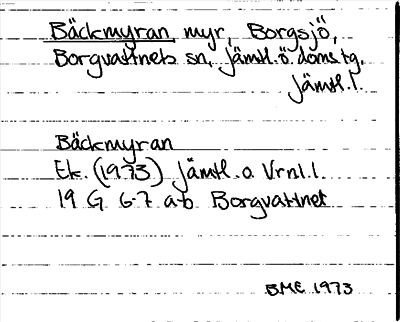 Bäckmyran, myr, Borgsjö,
Borgvattnets sn, Jämtl. ö. doms. tg.
Jämtl. l.
Bäckmyran
Ek. (1973) Jämtl. o. Vrnl. l.
19 G 6-7 a-b Borgvattnet
BME 1973